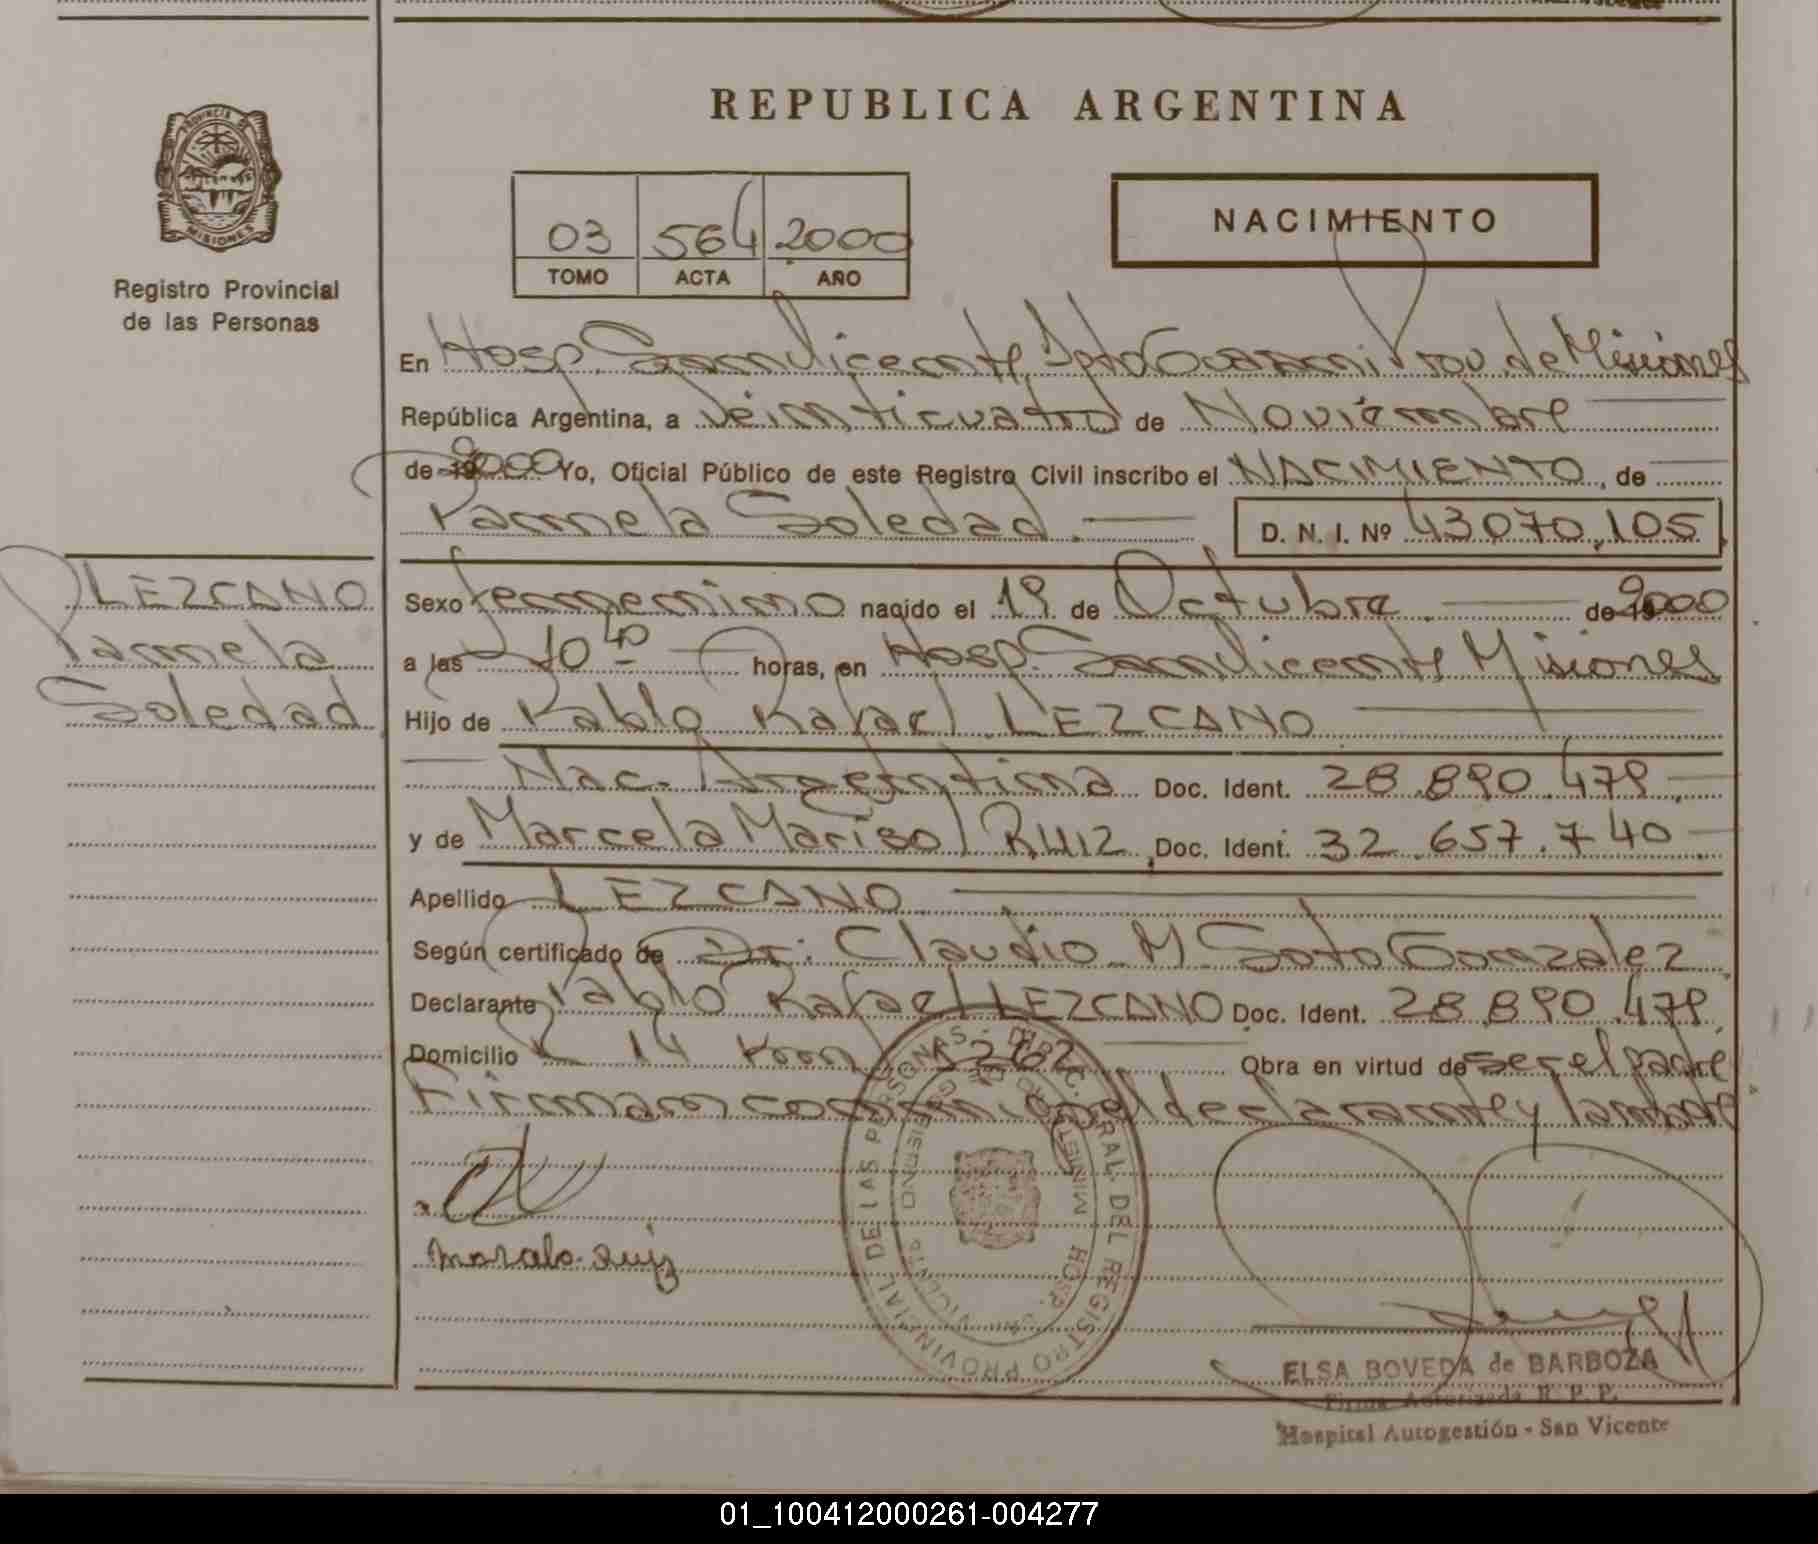 REPUBLICA ARGENTINA
PROVINCIA DE
MISIONES
Registro Provincial
de las Personas
03 564 2000
TOMO ACTA AÑO
NACIMIENTO
En Hosp. San Vicente, Dpto Guarani Prov. de Misiones
República Argentina, a Veinticuatro de Noviembre
de 19 2000 Yo, Oficial Público de este Registro Civil inscribo el NACIMIENTO, de
Pamela Soledad.
D. N. I. Nº 43070.105
LEZCANO
Pamela
Soledad
Sexo femenino nacido el 19 de Octubre de 19 2000
a las 10 40 horas, en Hosp. San Vicente Misiones
Hijo de Pablo Rafael LEZCANO
Nac. Argentina Doc. Ident. 28.890.479
y de Marcela Marisol RUIZ, Doc. Ident. 32.657.740
Apellido LEZCANO
Según certificado de Dr: Claudio M Soto Gonzalez
Declarante Pablo Rafael LEZCANO Doc. Ident. 28.890.479
Domicilio 14 Km 1262 Obra en virtud de ser el padre
Firman conmigo el declarante y la madre
PROVINCIAL DE LAS PERSONAS - DIREC. GENERAL DEL REGISTRO
HOSP. SAN VICENTE
ELSA BOVEDA de BARBOZA
Firma Autorizada R. P. P.
Hospital Autogestión - San Vicente
01_100412000261-004277